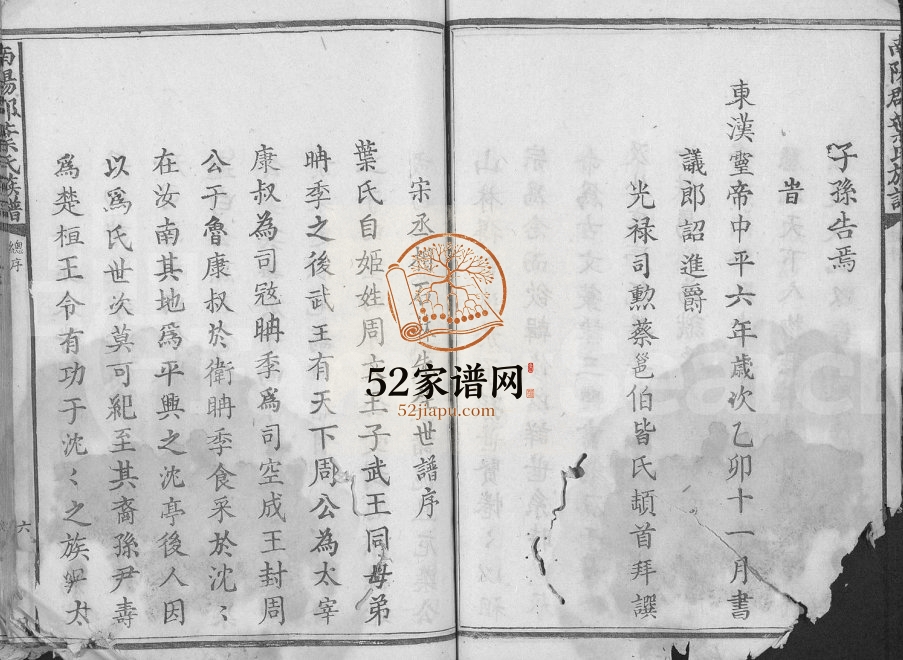 子孫告焉
旹
東漢靈帝中平六年歳次乙卯十一月書
議郎詔進爵
光禄司勲蔡邕伯喈氏頓首拜譔
宋丞相石林先世譜序
葉氏自姬姓周文王子武王同母弟
冉季之後武王有天下周公為太宰
康叔為司宼冉季爲司空成王封周
公于魯康叔於衛冉季食采於沈〻
在汝南其地爲平輿之沈亭後人因
以爲氏世次莫可紀至其裔孫尹壽
爲楚桓王令有功于沈〻之族大
南陽郡葉氏族譜
總序
六
52家谱网
52jiapu.com